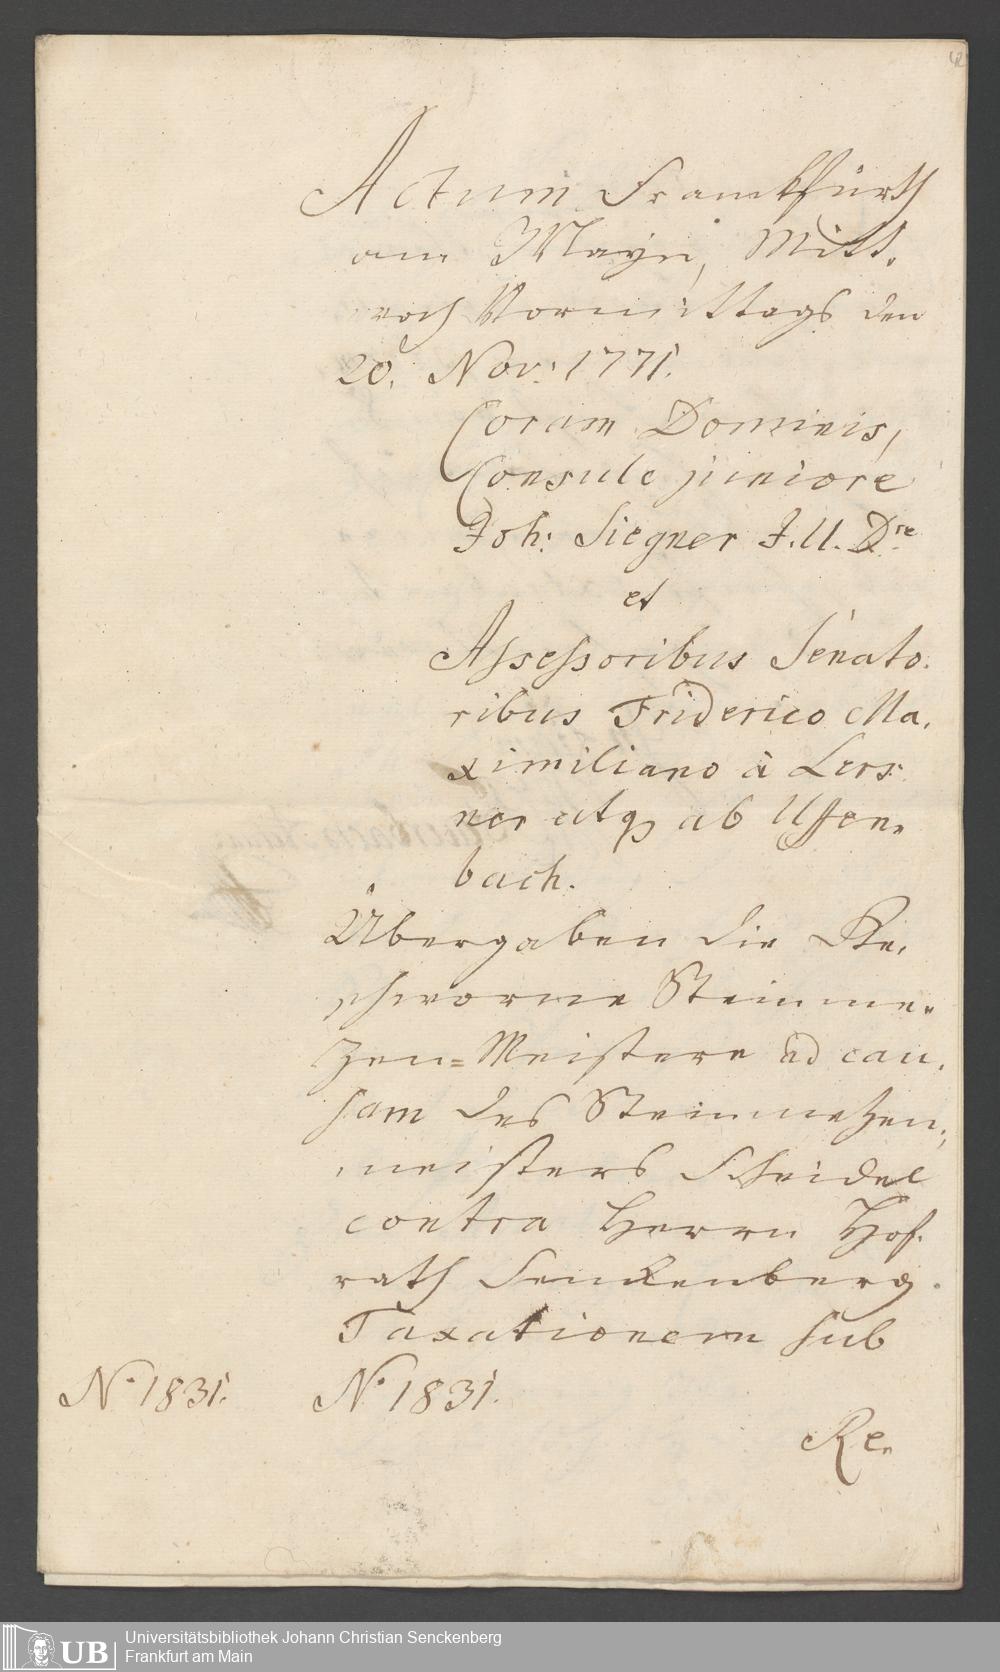 Actum Franckfurth
am Mayn, Mitt-
woch Vormittags den
20. Nov: 1771.
Coram Dominis,
Consule juniore
Joh: Siegner J. U. Dre
et
Assessoribus Senato-
ribus Friderico Ma-
ximiliano à Lers-
ner atq ab Uffen-
bach.
Übergaben die Ge-
schworne Steinme-
zen-Meistere ad cau-
sam des Steinmetzen-
meisters Scheidel
contra Herrn Hof-
rath Senckenberg
Taxationem sub
No 1831. No 1831.
Re-
UB Universitätsbibliothek Johann Christian Senckenberg
Frankfurt am Main